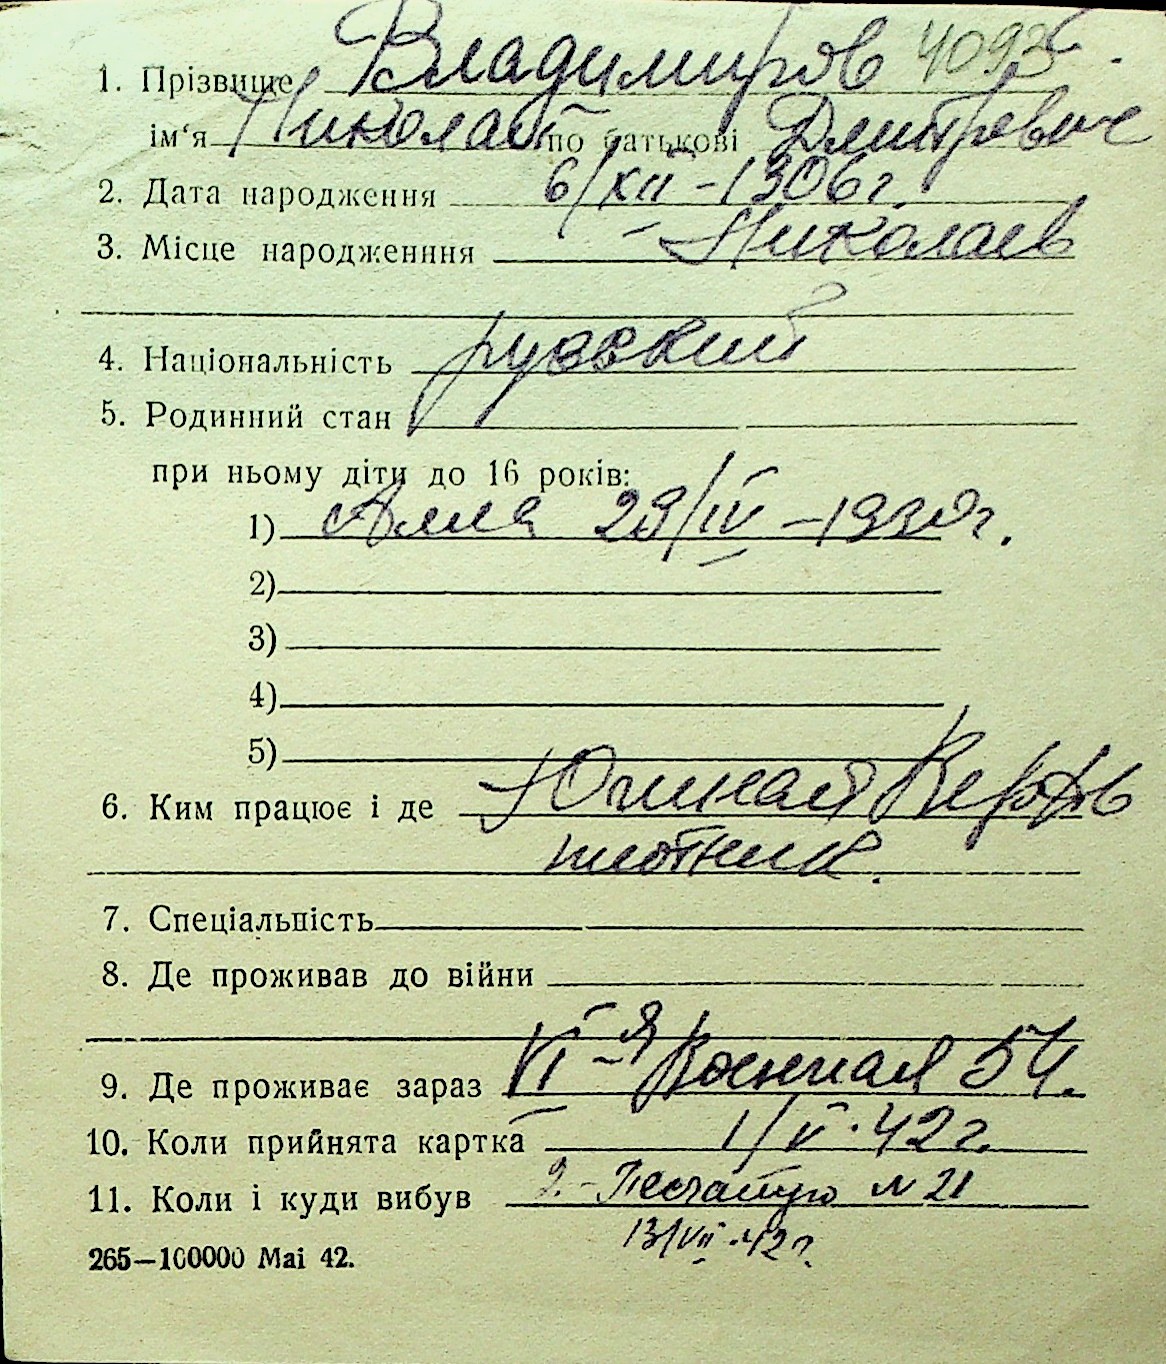 4093
1. Прізвище Владимиров
ім‘я Николай по батькові Дмитревич
2. Дата народження 6/XII - 1906 г.
3. Місце народженння Николаев
4. Національність русский
5. Родинний стан
при ньому діти до 16 років:
1) Алла 29/IV - 1930 г.
2)
3)
4)
5)
6. Ким працює і де Южная Верфь
плотник.
7. Спеціальність
8. Де проживав до війни
9. Де проживає зараз VI-я Военная 54.
10. Коли прийнята картка 1/V. 42 г.
11. Коли і куди вибув 2. - Песчаную N 21
13/VII. 42 г.
265—100000 Маі 42.